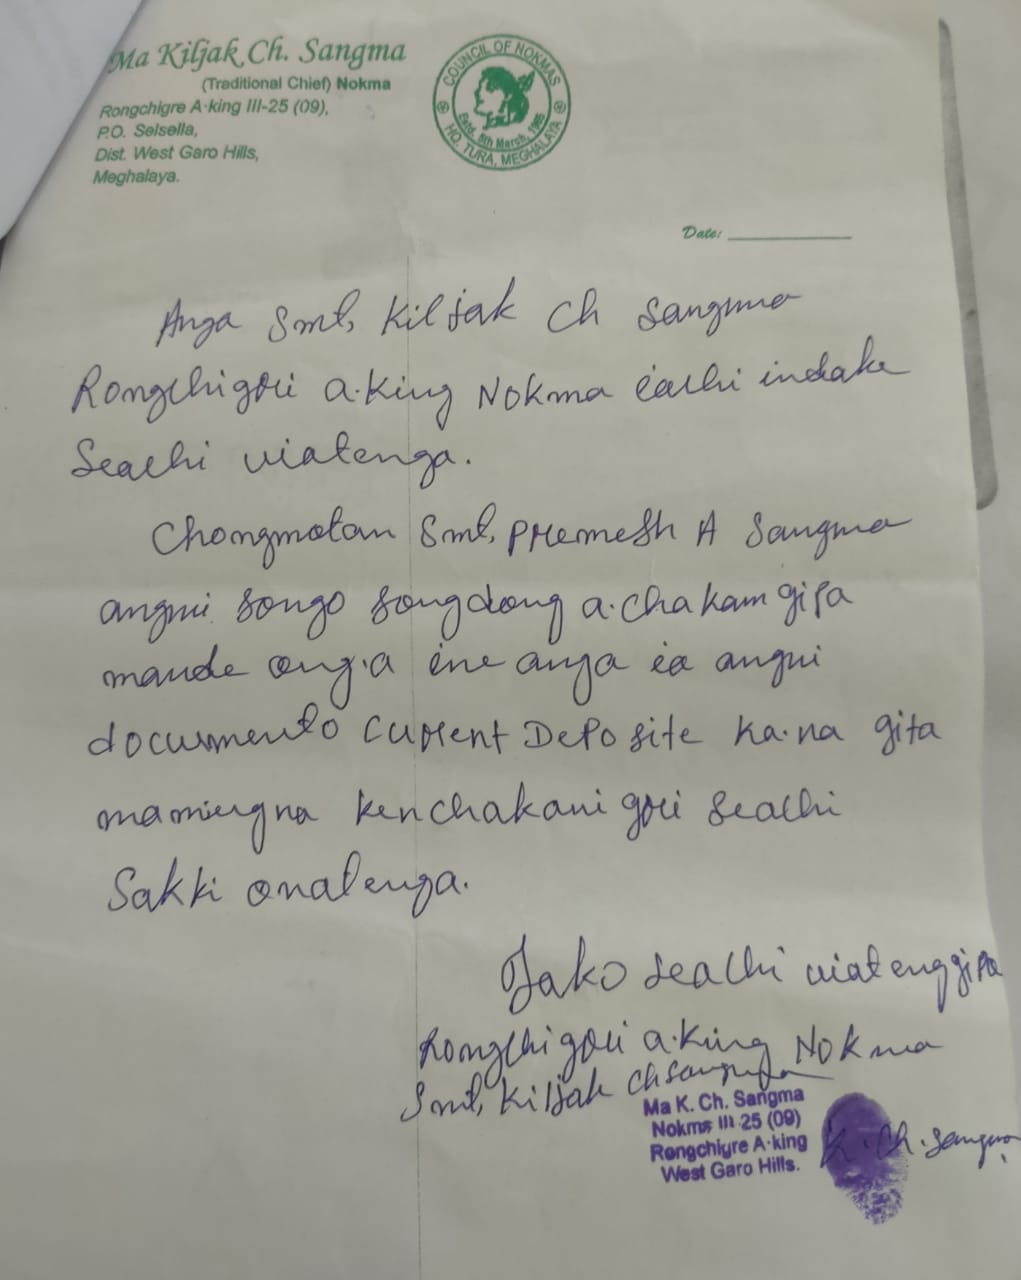 Ma Kiljak Ch. Sangma
(Traditional Chief) Nokma
Rongchigre A·king III-25 (09),
P.O. Selsella,
Dist. West Garo Hills,
Meghalaya.
COUNCIL OF NOKMAS
Estd. 8th March,
HQ. TURA, MEGHALAYA
Date:
Anga Smt, Kiljak Ch Sangma
Rongchigri a·king Nokma iachi indake
Seachi uiatenga.
Chongmotan Smt, Premesh A Sangma
angni songo songdong a·chakamgipa
mande ong·a ine anga ia angni
documento current Deposite ka·na gita
mamingna kenchakani gri seachi
Sakki onatenga.
Iako seachi uiatenggipa
Rongchigri a·king Nokma
Smt, Kiljak Ch Sangma
Ma K. Ch. Sangma
Nokma III-25 (09)
Rongchigre A·king
West Garo Hills.
K. Ch. Sangma